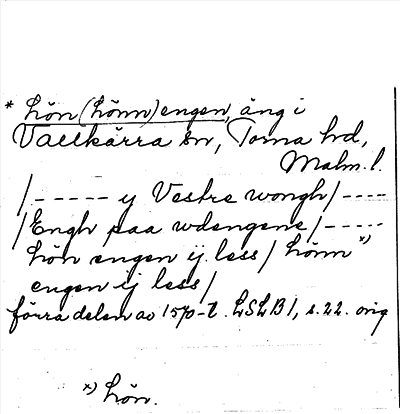 * hön (hönn) engen, äng i
Vallkärra sn, Torna hd,
Malm. l.
/ - - - - - y Vestre wongh / - - - -
/ Engh paa wdengene / - - - - -
hön engen ij less / hönn x)
engen ij less /
förra delen av 1570-t. LSLB 1, s. 22. orig
x) hön.